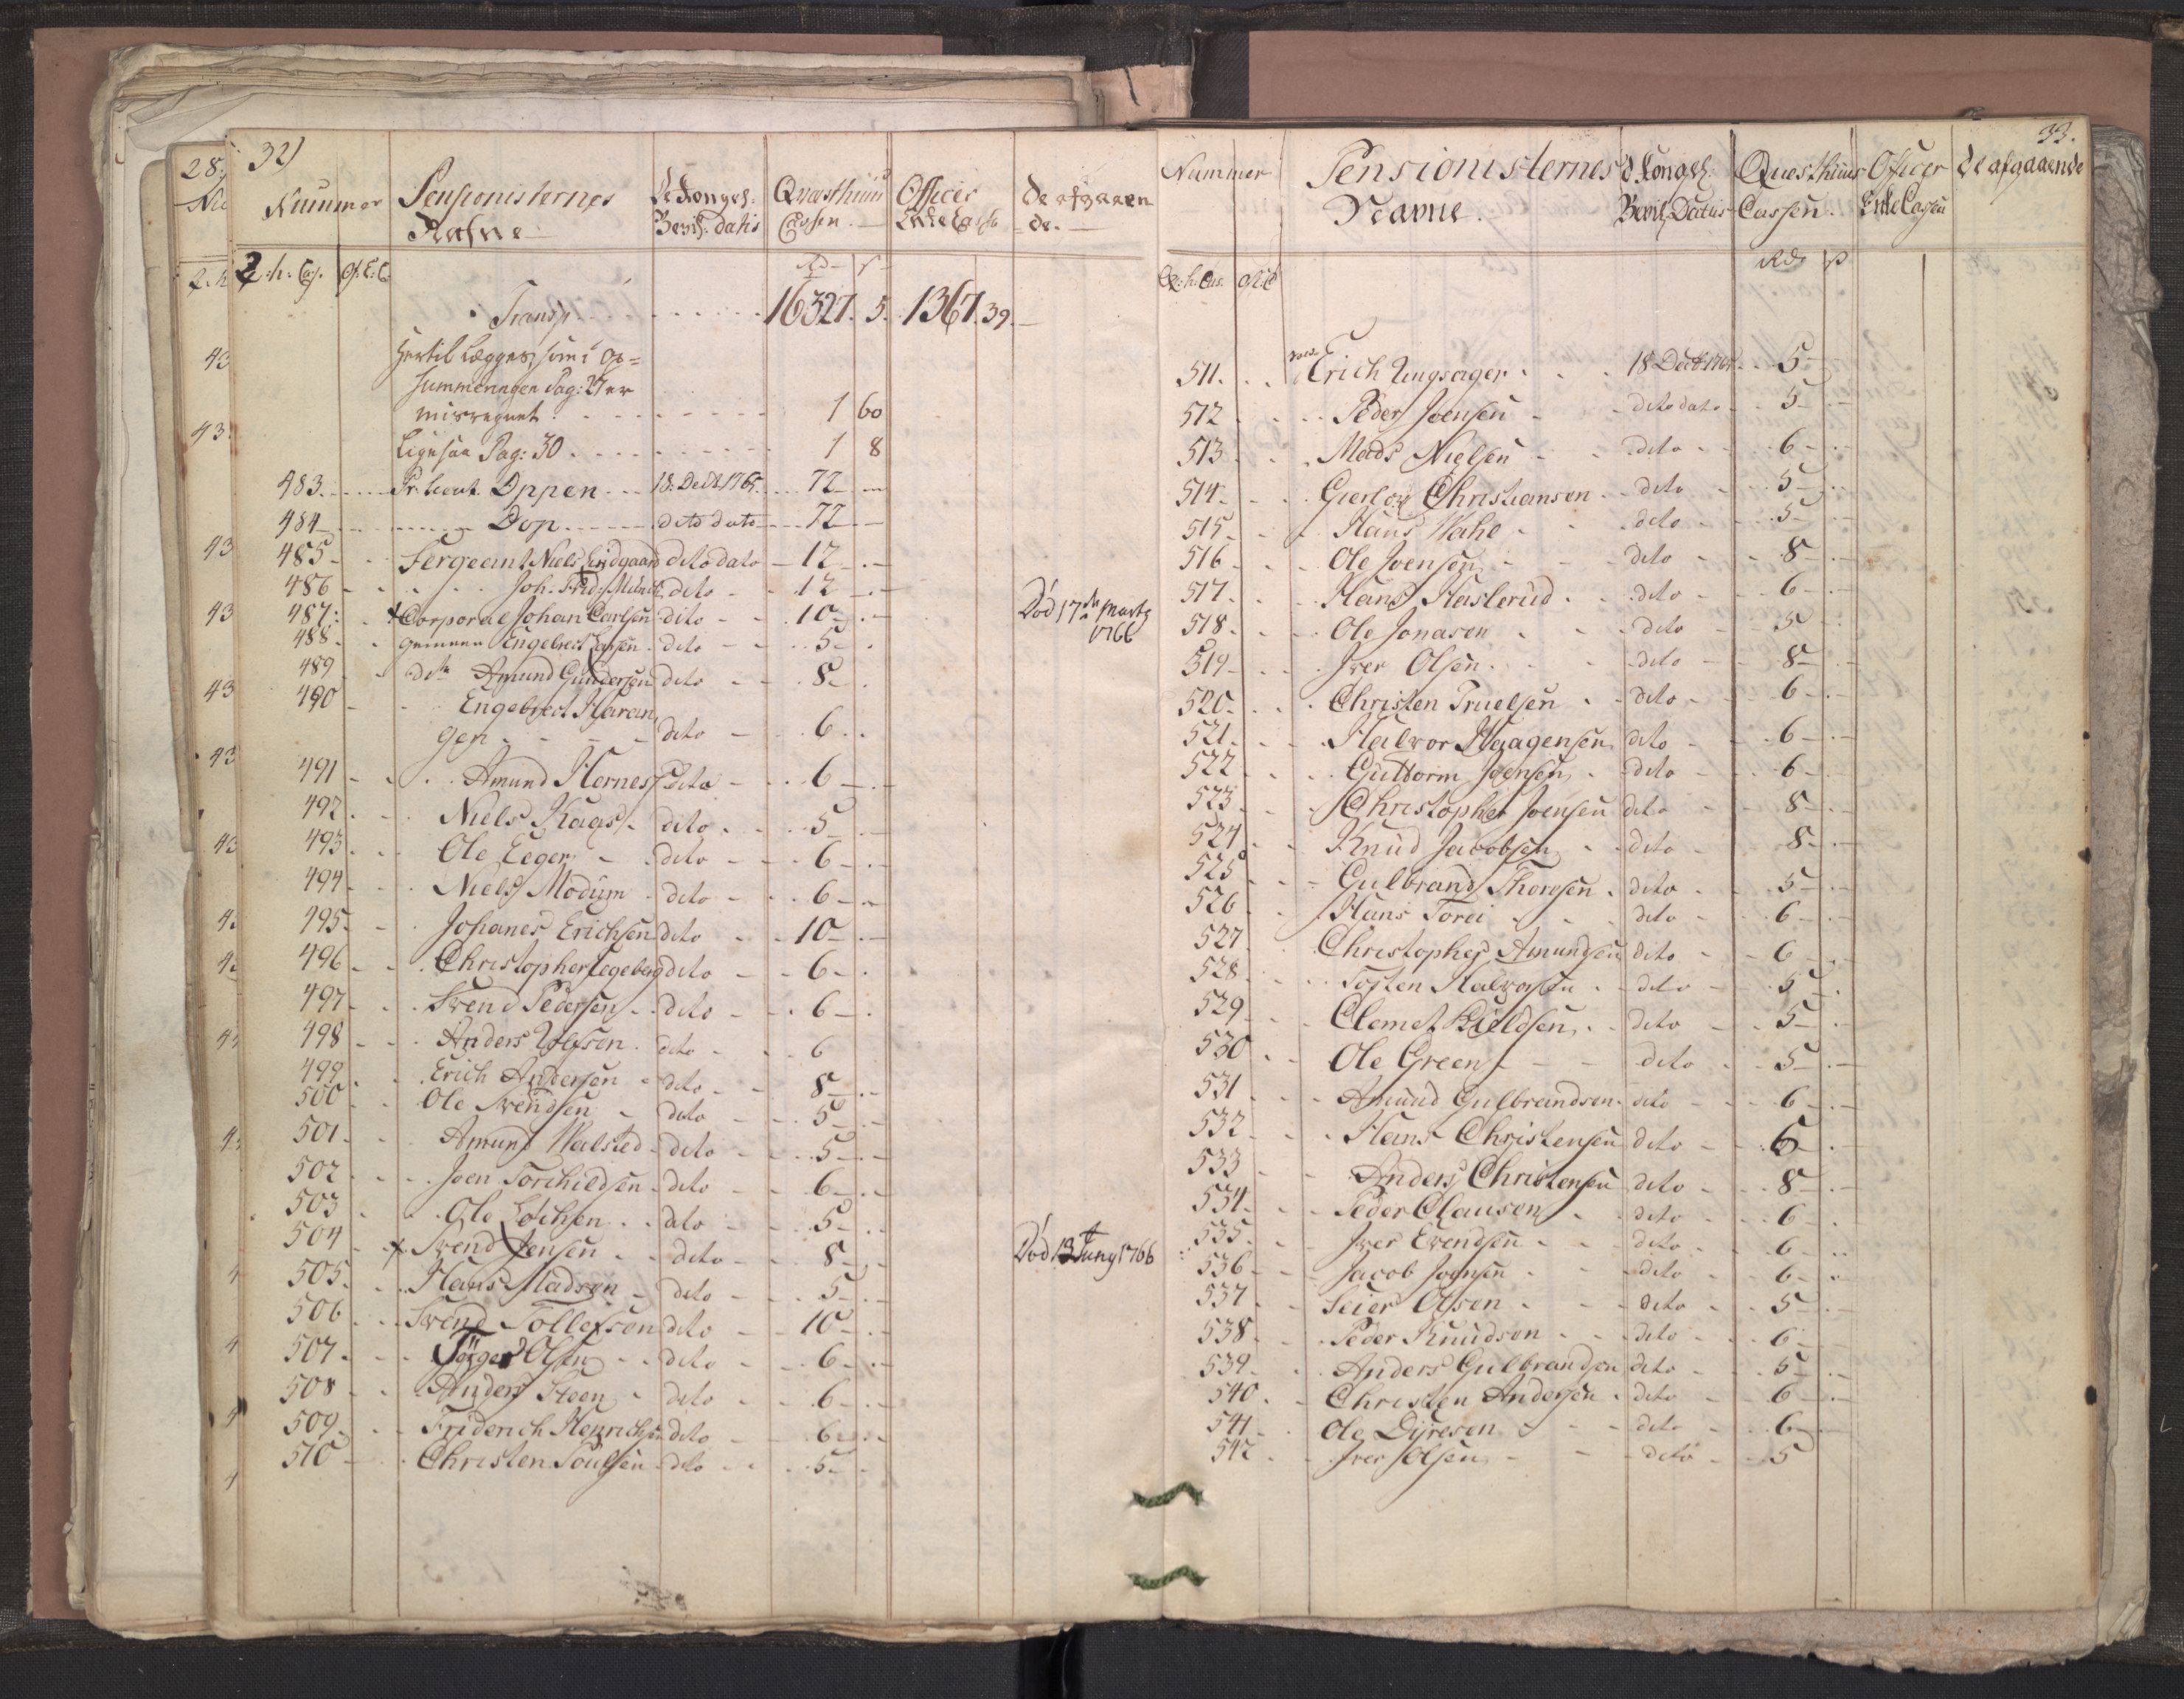 28.
32)
Nummer Pensionisternes De Kongel: Qvæsthuus Officer De afgaaen
Nafne Bevil: datis Cassen. Enke Casse de.
Q: h: Cas. Of: E: C. Rd ß
Transp. 16327. 5. 1367. 39.
Hertil Lægges, som i Op=
summeringen Pag: 27 er
misregnet 1 60
Ligesaa Pag: 30 1 8
483. Pr: Lieut. Oppen 18. Decbr 1765. 72
484 Dop dito dato 72
485 Sergeant Niels Lindgaard dito dato 12
486 Joh: Frid: Münch dito 12
487: + Corporal Johan Carlsen dito 10 Död 17de Marty
1766
488 gemeene Engebrect Larsen dito 5
489 dito Amund Gundersen dito 8
490 Engebrect Haran
gen dito 6
491 Amund Hernes dito 6
492 Niels Kaas dito 5
493 Ole Eeger dito 6
494 Niels Modum dito 6
495 Johanes Erichsen dito 10
496 Christopher Segeberg dito 6
497 Svend Pedersen dito 6
498 Anders Ulfsen dito 6
499 Erich Andersen dito 8
500 Ole Svendsen dito 5
501 Amund Walsted dito 5
502 Joen Torchildsen dito 6
503 Ole Lochsen dito 5
504 + Svend Jensen dito 8 Död 13 Juny 1766
505 Hans Madsen dito 5
506 Svend Tollefsen dito 10
507 Törger Olsen dito 6
508 Anders Steen dito 6
509 Friderich Henrichsen dito 6
510 Christen Poulsen dito 5
33.
Nummer Pensionisternes d. Kongel: Quæsthuus Officer De afgaaende
Navne. Bevil: Datis Cassen. Enke Casen
Q: h. Cas. Rd ß
511. Erich Ungsager 18 Decbr 1765 5
512 Peder Joensen dito dato 5
513 Mads Nielsen dito 6
514 Gierløv Christiansen dito 5
515 Hans Wahe dito 5
516 Ole Joensen dito 8
517 Hans Haslerud dito 6
518 Ole Jonasen dito 5
519 Iver Olsen dito 8
520 Christen Truelsen dito 6
521 Halvor Haagensen dito 6
522 Guttorm Joensen dito 6
523 Christopher Joensen dito 8
524 Knud Jacobsen dito 8
525 Gulbrand Thoresen dito 5
526 Hans Tordi dito 6
527 Christopher Amundsen dito 6
528 Tosten Halvorsen dito 5
529 Clemet Kieldsen dito 5
530 Ole Green dito 5
531 Amund Gulbrandsen dito 6
532 Hans Christensen dito 6
533 Anders Christensen dito 8
534 Peder Clausen dito 6
535 Iver Evendsen dito 6
536 Jacob Joensen dito 6
537 Seier Olsen dito 5
538 Peder Knudsen dito 6
539 Anders Gulbrandsen dito 5
540 Christen Andersen dito 6
541 Ole Dyresen dito 6
542 Iver Olsen dito 5